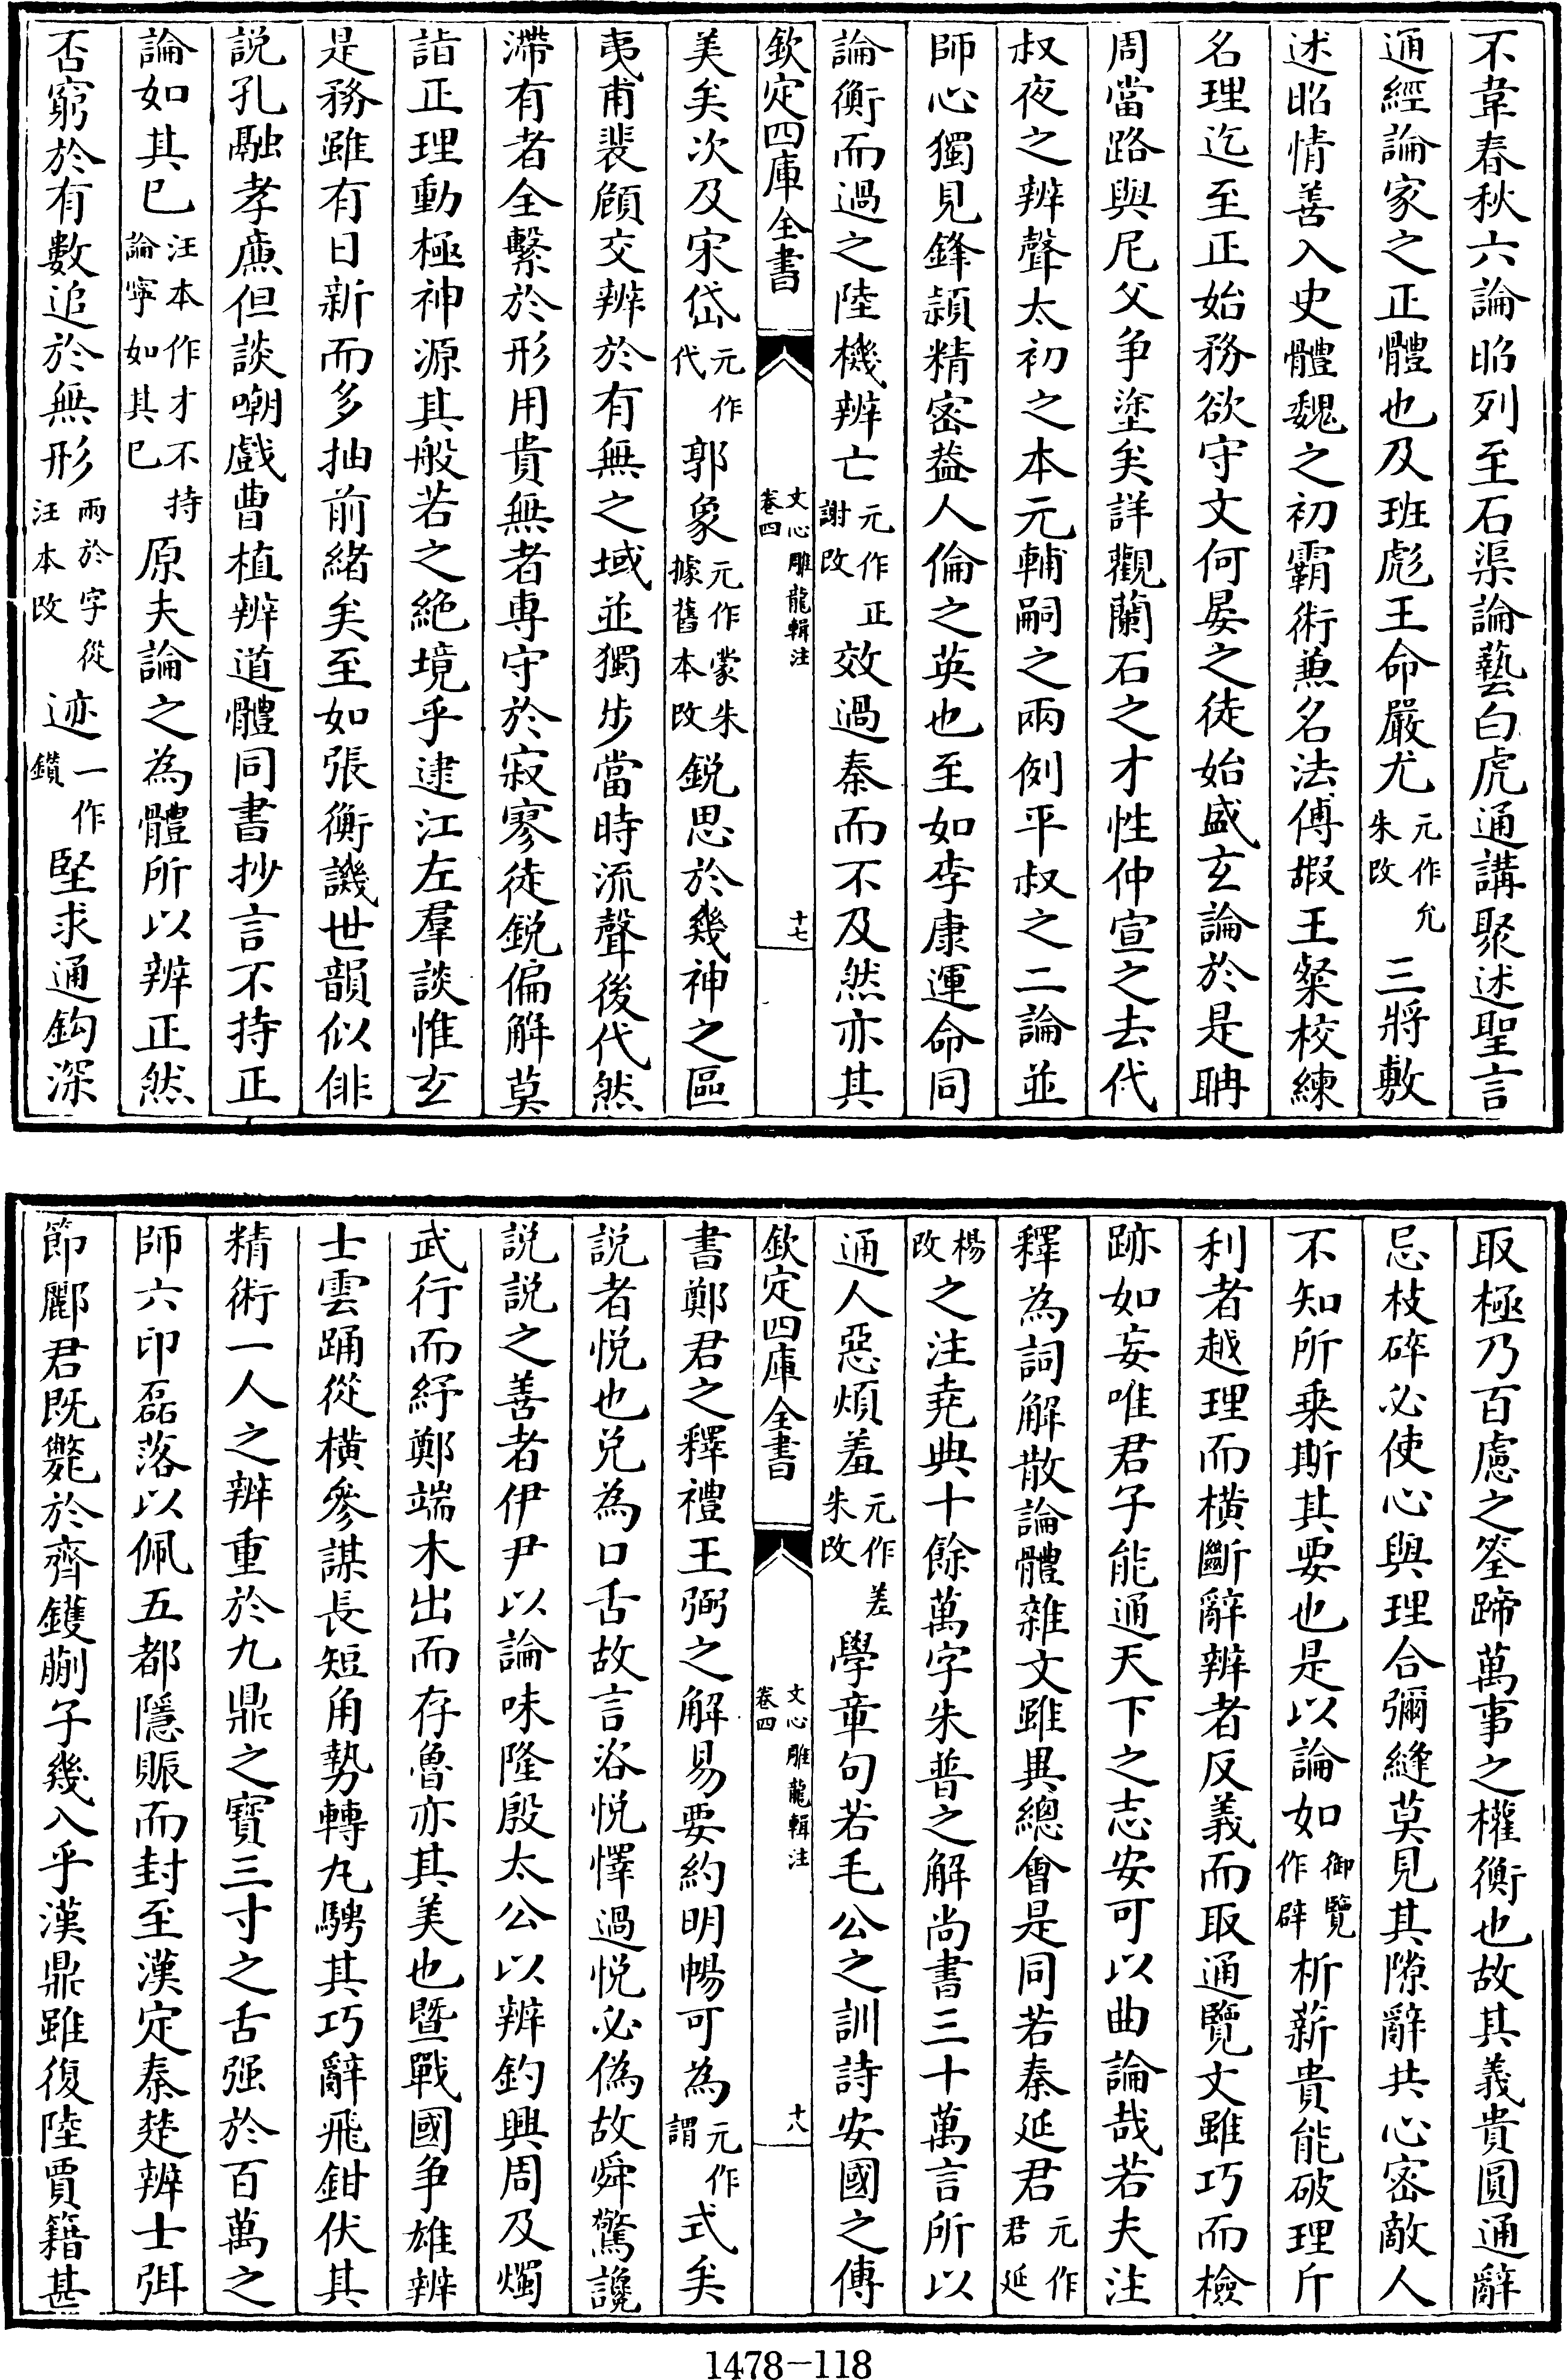 不韋春秋六論昭列至石渠論藝白虎通講聚述聖言
通經論家之正體也及班彪王命嚴尤元作允朱改三將敷
述昭情善入史體魏之初霸術兼名法傅嘏王粲校練
名理迄至正始務欲守文何晏之徒始盛玄論於是聃
周當路與尼父爭塗矣詳觀蘭石之才性仲宣之去代
叔夜之辨聲太初之本元輔嗣之兩例平叔之二論並
師心獨見鋒穎精密葢人倫之英也至如李康運命同
論衡而過之陸機辨亡元作正謝改效過秦而不及然亦其
欽定四庫全書 文心雕龍輯注卷四 十七
美矣次及宋岱元作代郭象元作蒙朱據舊本改鋭思於幾神之區
夷甫裴頠交辨於有無之域並獨步當時流聲後代然
滯有者全繫於形用貴無者專守於寂寥徒鋭偏解莫
詣正理動極神源其般若之絶境乎逮江左羣談惟玄
是務雖有日新而多抽前緒矣至如張衡譏世韻似俳
説孔融孝廉但談嘲戲曹植辨道體同書抄言不持正
論如其已汪本作才不持論寧如其已原夫論之為體所以辨正然
否窮於有數追於無形兩於字從汪本改迹一作鑽堅求通鈎深
取極乃百慮之筌蹄萬事之權衡也故其義貴圓通辭
忌枝碎必使心與理合彌縫莫見其隙辭共心密敵人
不知所乗斯其要也是以論如御覽作辟析薪貴能破理斤
利者越理而橫斷辭辨者反義而取通覽文雖巧而檢
跡如妄唯君子能通天下之志安可以曲論哉若夫注
釋為詞解散論體雜文雖異總會是同若秦延君元作君延
楊改之注堯典十餘萬字朱普之解尚書三十萬言所以
通人惡煩羞元作差朱改學章句若毛公之訓詩安國之傳
欽定四庫全書 文心雕龍輯注卷四 十八
書鄭君之釋禮王弼之解易要約明暢可為元作謂式矣
説者悦也兑為口舌故言咨悦懌過悦必偽故舜驚讒
説説之善者伊尹以論味隆殷太公以辨釣興周及燭
武行而紓鄭端木出而存魯亦其美也暨戰國爭雄辨
士雲踊從橫參謀長短角勢轉丸騁其巧辭飛鉗伏其
精術一人之辨重於九鼎之寶三寸之舌强於百萬之
師六印磊落以佩五都隱賑而封至漢定秦楚辨士弭
節酈君既斃於齊鑊蒯子幾入乎漢鼎雖復陸賈籍甚
1478—118